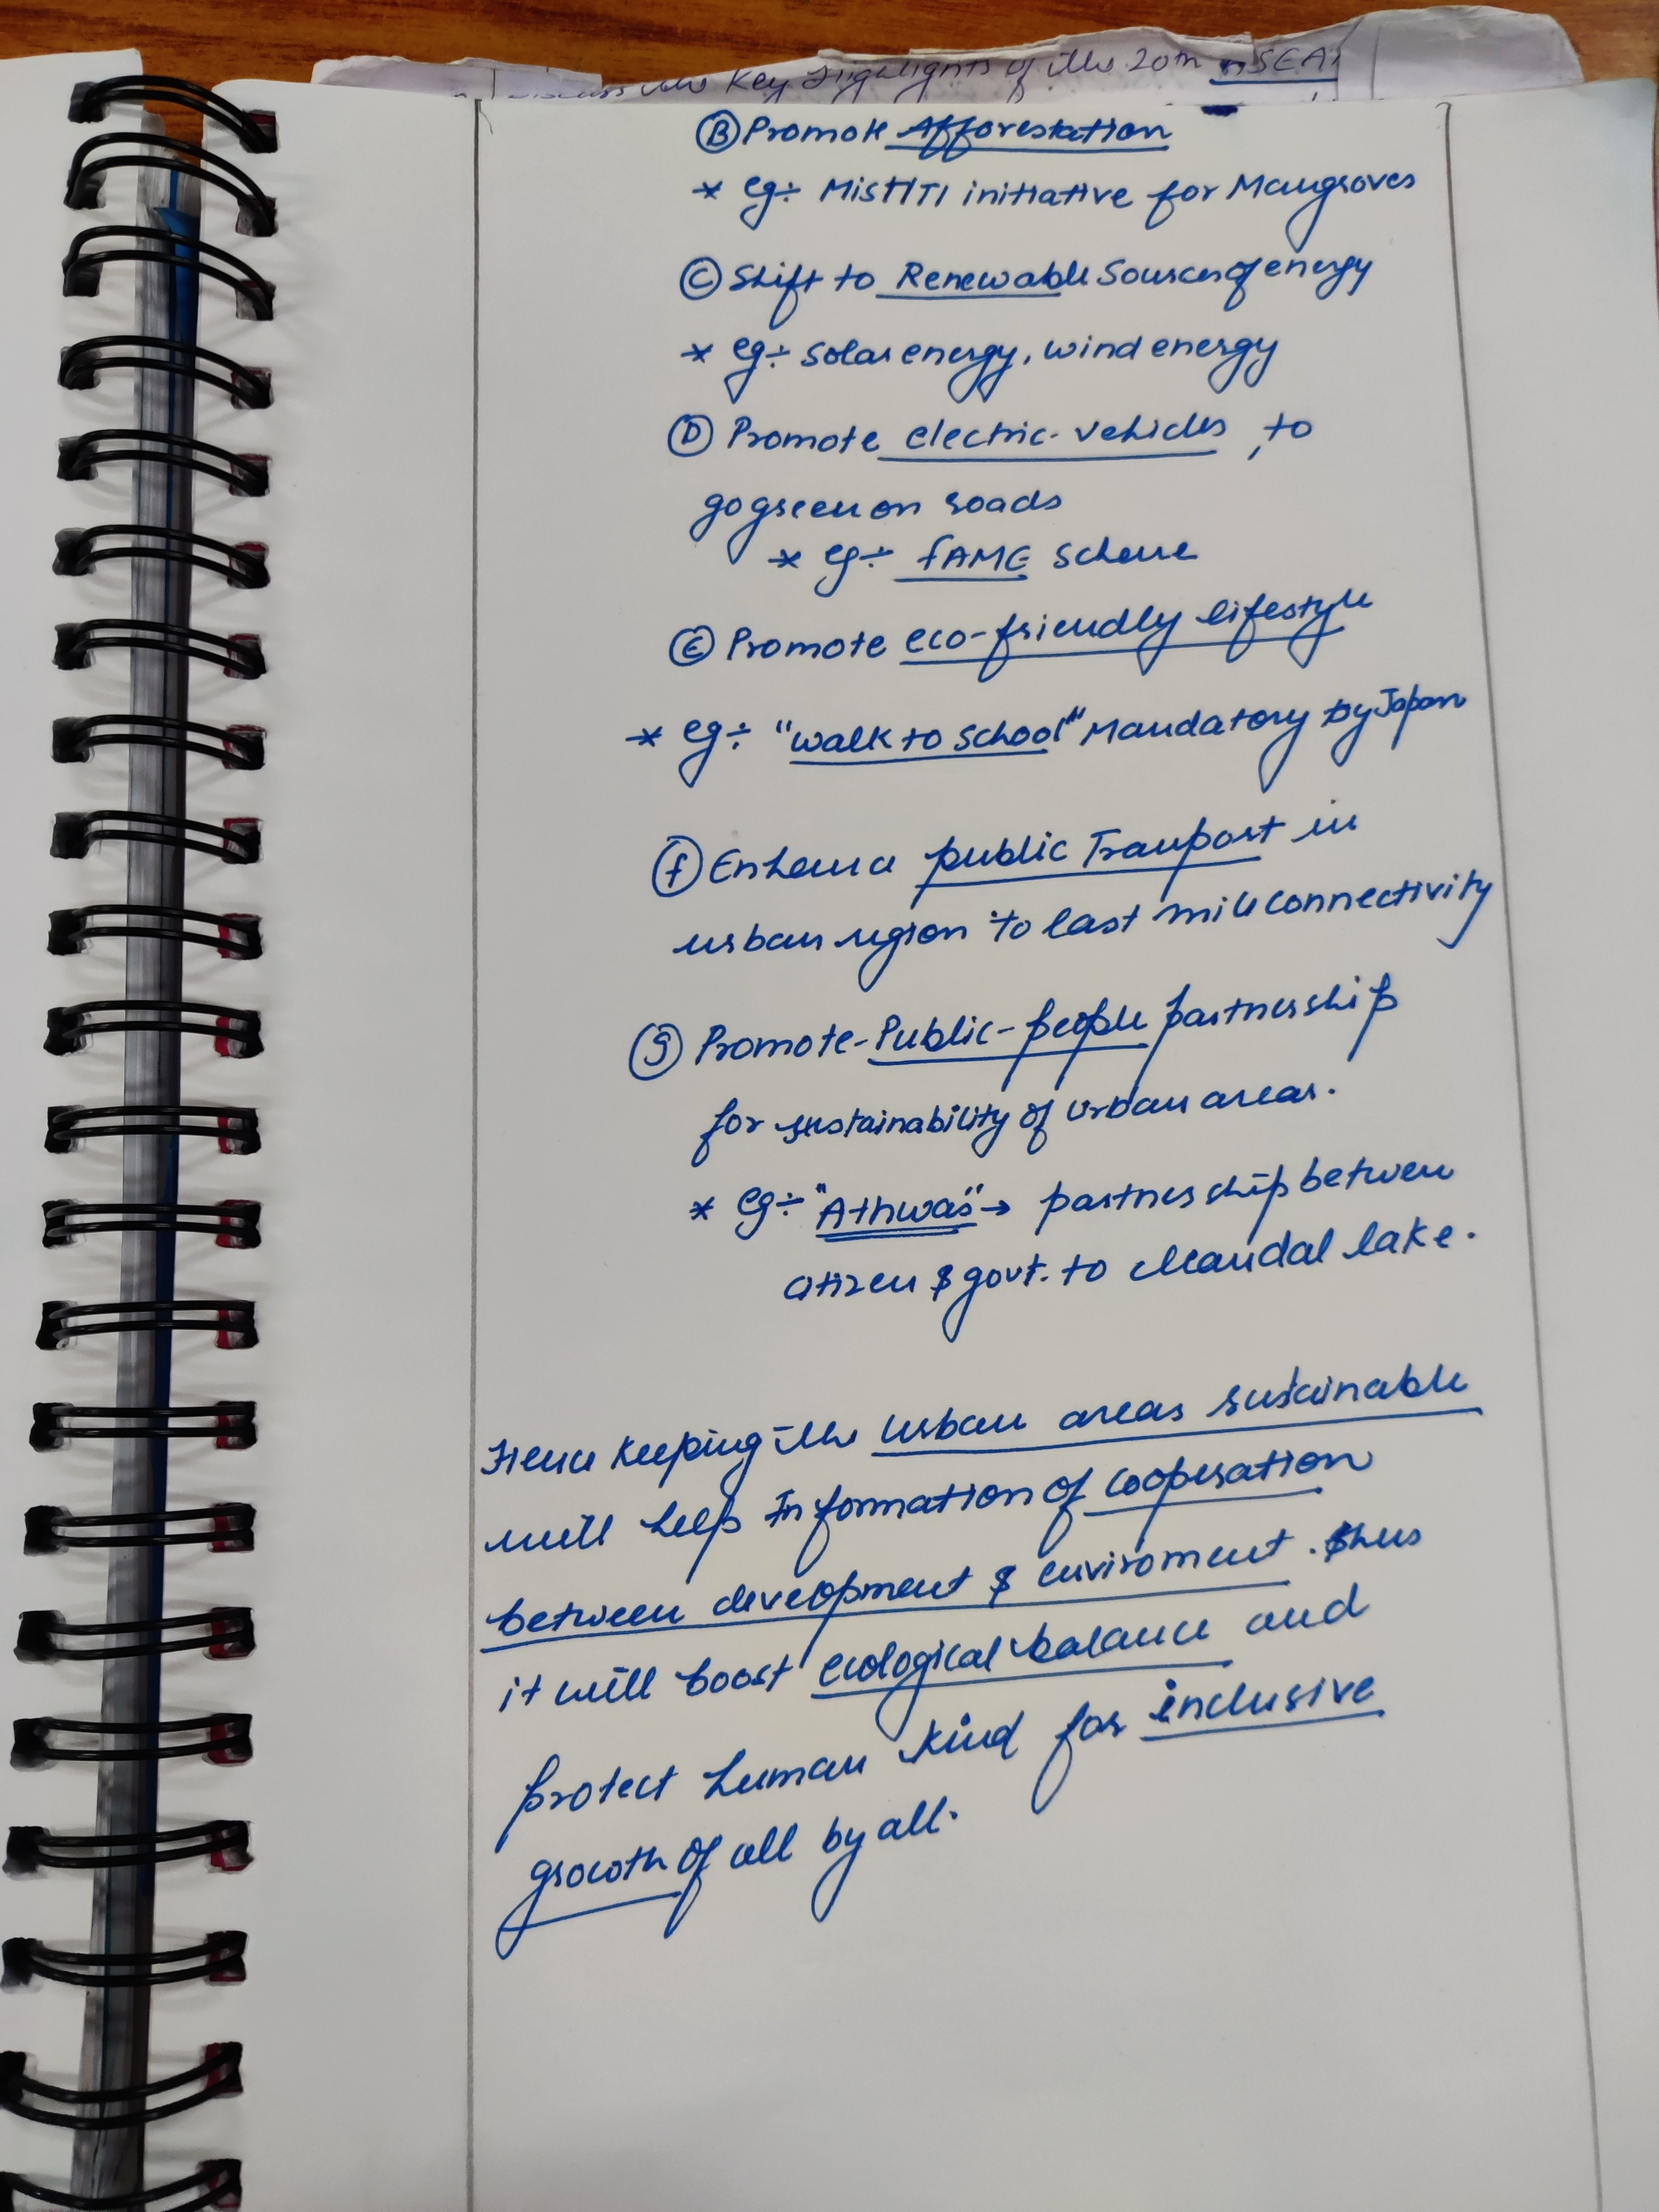 Key Highlights of the 20th
Ⓑ Promote Afforestation
* eg÷ MISHTI initiative for Mangroves
Ⓒ Shift to Renewable Sources of energy
* eg÷ Solar energy, wind energy
Ⓓ Promote electric-vehicles, to
go green on roads
* eg÷ fAME scheme
Ⓔ Promote eco-friendly lifestyle
* eg÷ "walk to school" Mandatory by Japan
ⓕ Enhance public Tranport in
urban region to last mile connectivity
ⓖ Promote-Public-people partnership
for sustainability of urban areas.
* eg÷ "Athwas" → partnership between
citizen & govt. to clean dal lake.
Hence keeping the urban areas sustainable
will help In formation of cooperation
between deveopment & enviroment. Thus
it will boost ecological balance and
protect human kind for inclusive
growth of all by all.